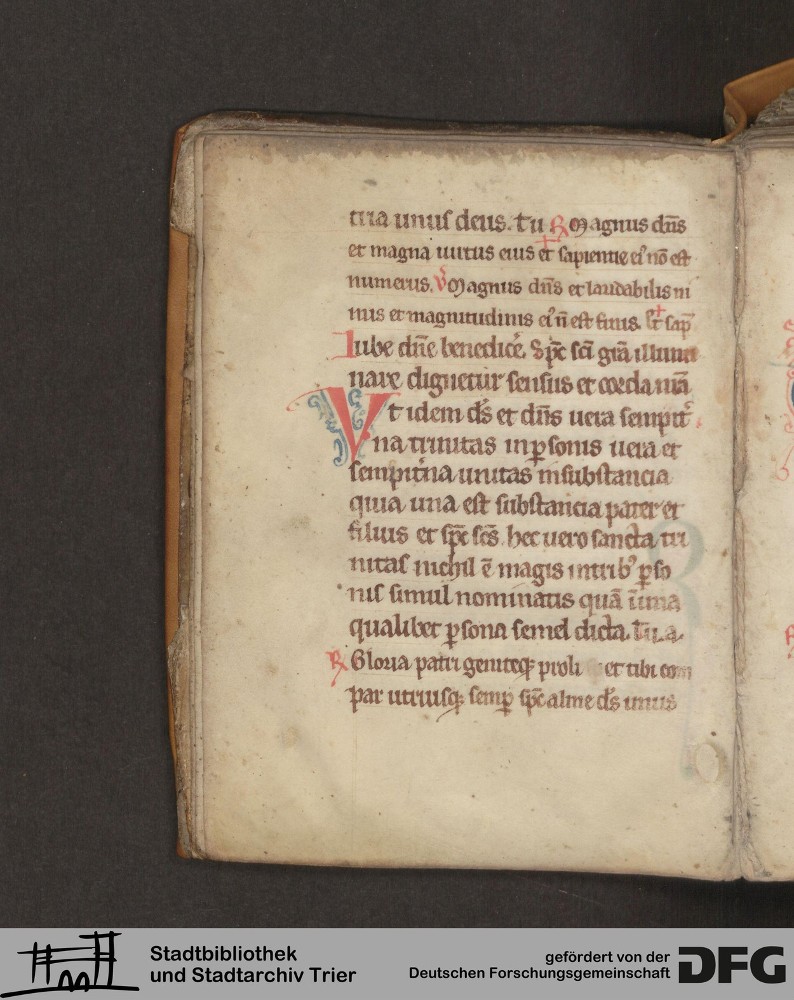 tria unus deus. tu ℟ Magnus dn̄s
et magna uirtus eius et sapientie ei᾽ nō est
numerus. ℣ Magnus dn̄s et laudabilis ni
mis et magnitudinis ei᾽ n̄ est finis. Et sap̄
Iube dn̄e benedicē. Sp̄c sc̄i gr̄a illumi
nare dignetur sensus et corda nr̄a
Vt idem ds̄ et dn̄s uera sempit᾽
na trinitas in ꝑsonis uera et
sempit᾽na unitas in substancia
quia una est substancia pater et
filius et sp̄c sc̄s. hec uero sancta tri
nitas nichil ē magis in trib᾽ ꝑso
nis simul nominatis quā ī una
qualibet ꝑsona semel dicta. Tu. a.
℟ Gloria patri geniteqꝫ proli et tibi com
par utriusqꝫ semꝑ sp̄c alme ds̄ unus
Stadtbibliothek
und Stadtarchiv Trier
gefördert von der
Deutschen Forschungsgemeinschaft
DFG